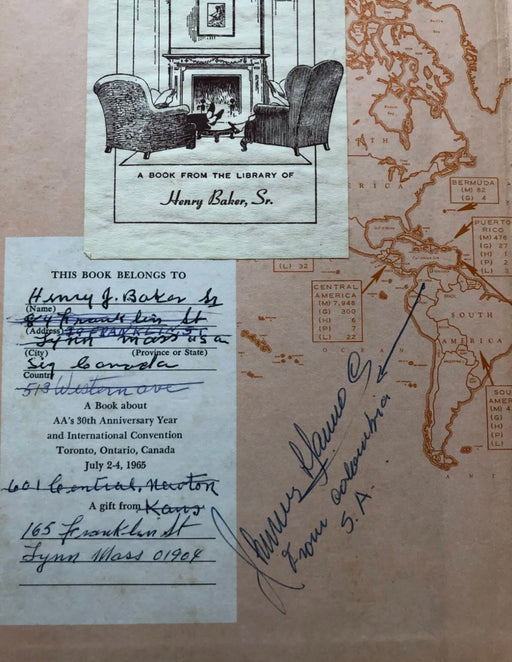 A BOOK FROM THE LIBRARY OF
Henry Baker, Sr.
THIS BOOK BELONGS TO
Henry J. Baker Sr
(Name)
Franklin St
(Address)
Lynn Mass USA
(City) (Province or State)
Canada
Country
513 Western ave
A Book about
AA's 30th Anniversary Year
and International Convention
Toronto, Ontario, Canada
July 2-4, 1965
601 Central, Newton
A gift from Kans
165 Franklin St
Lynn Mass 01904
From Colombia
S.A.
BERMUDA
(M) 82
(G) 4
PUERTO
RICO
(M) 476
(G) 27
(H) 1
(P) 2
(L) 3
(L) 32
CENTRAL
AMERICA
(M) 7,948
(G) 300
(H) 6
(P) 7
(L) 22
BRAZIL
SOUTH
AMERICA
SOU
AMER
(M) 4
(G)
(H)
(P)
(L)